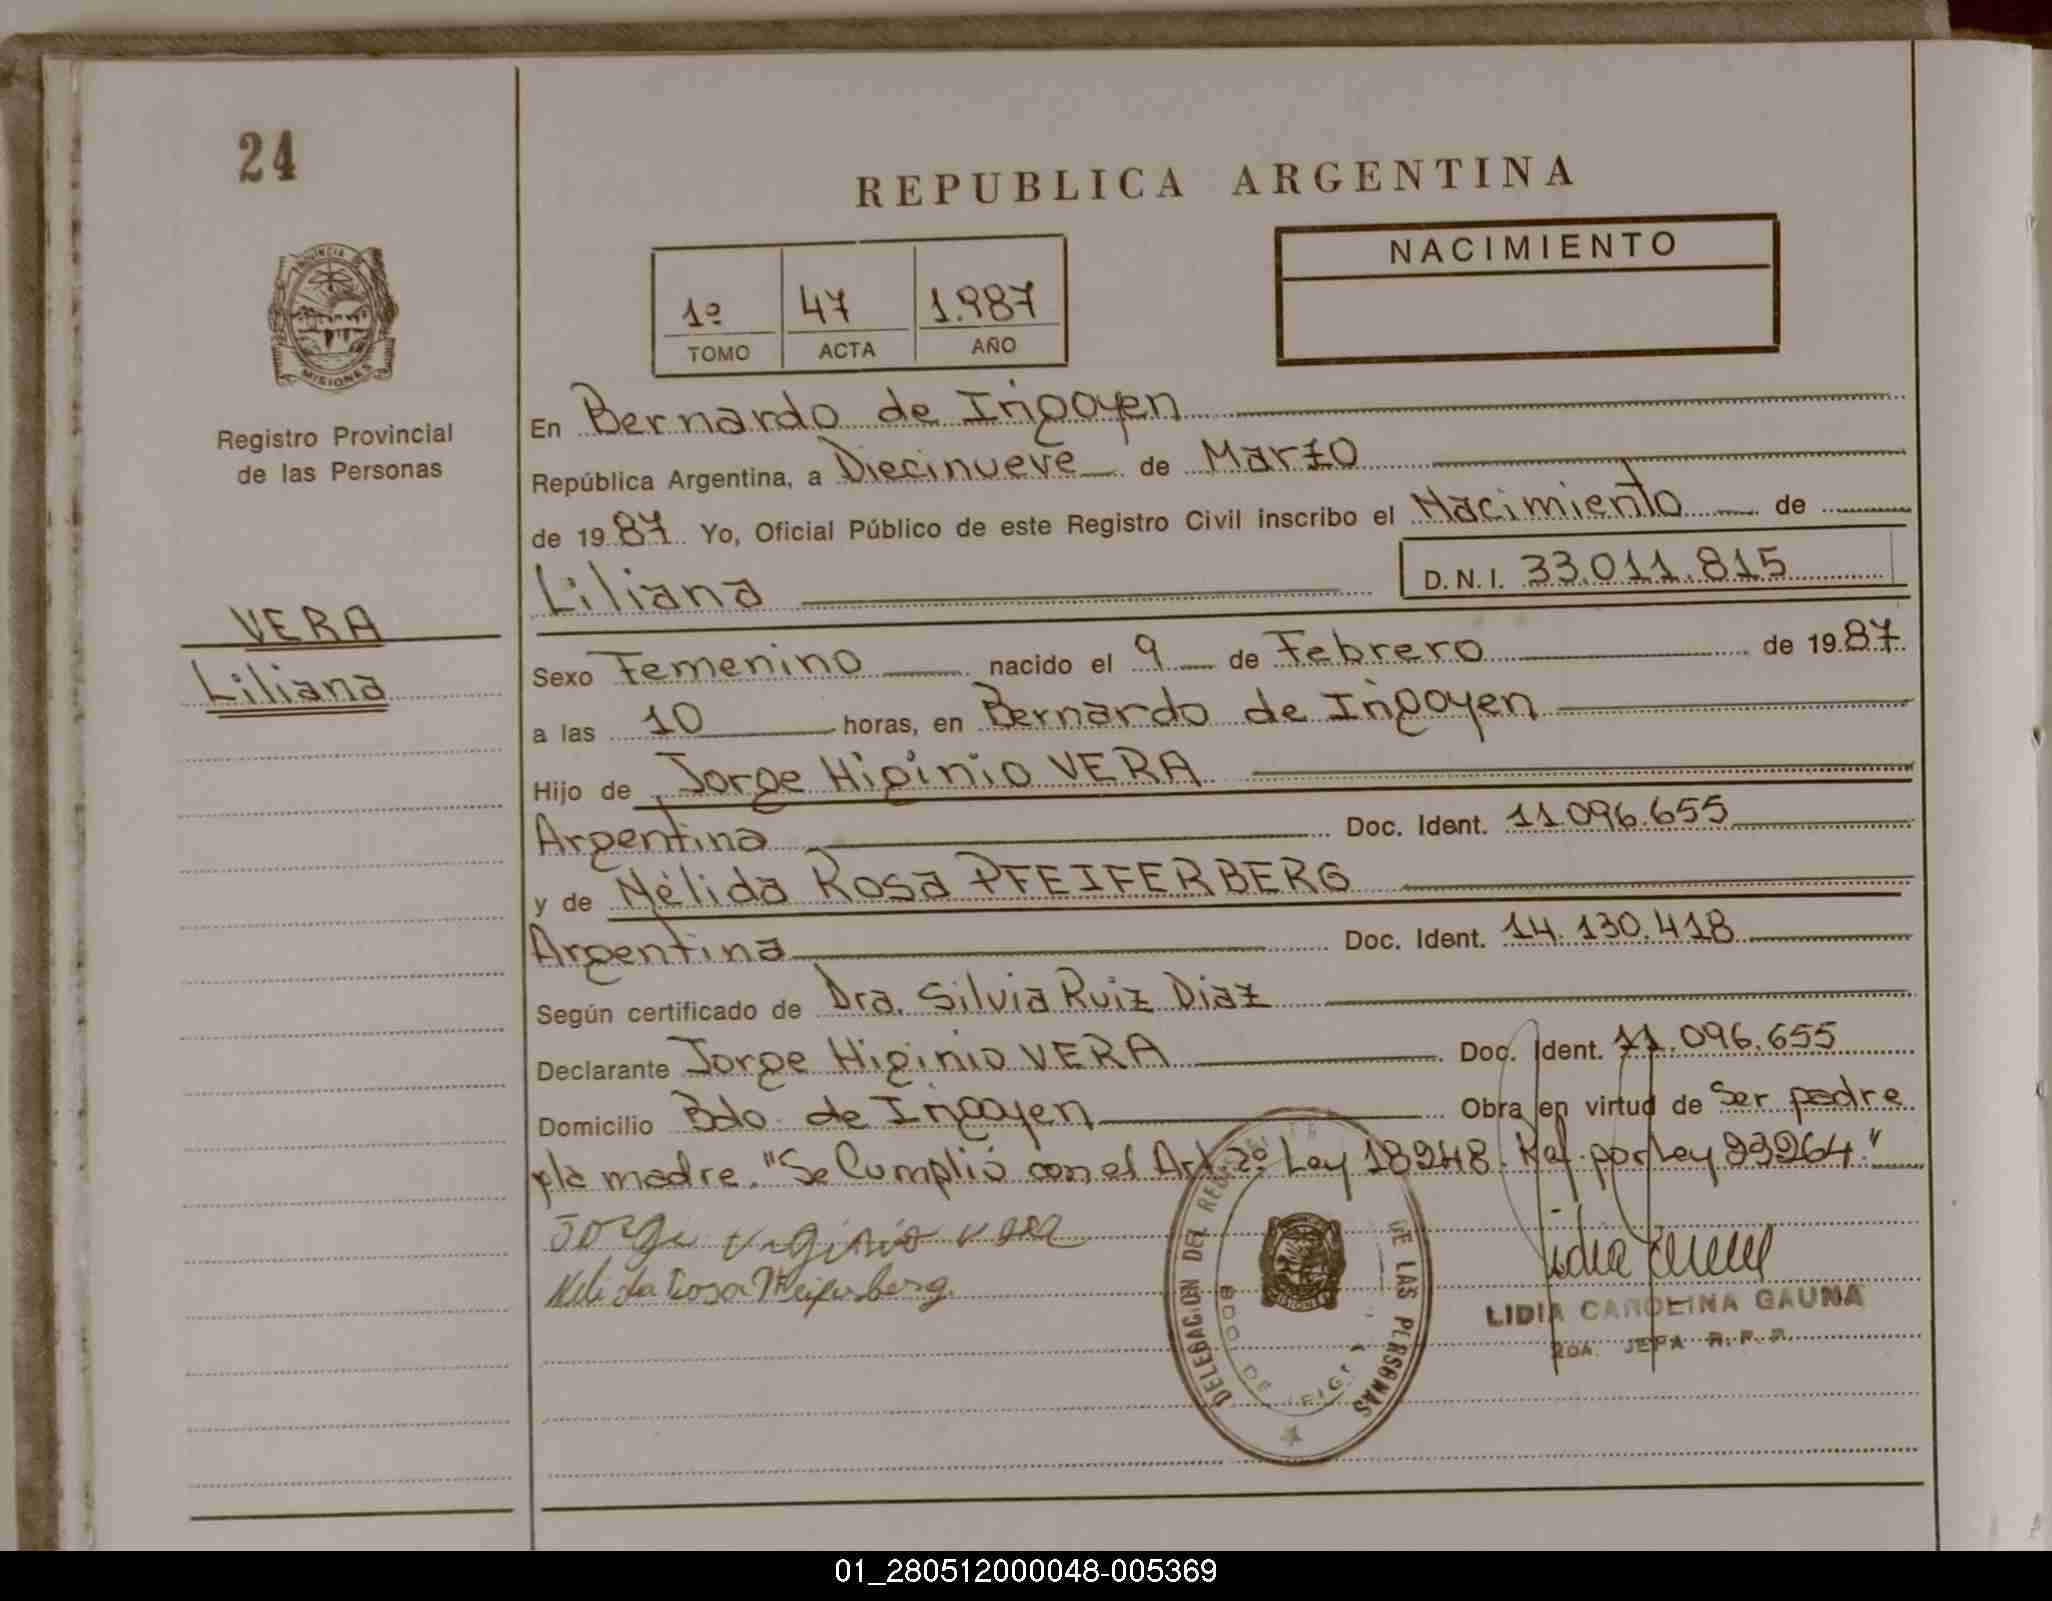 24
REPUBLICA ARGENTINA
NACIMIENTO
1º 47 1.987
TOMO ACTA AÑO
PROVINCIA DE
MISIONES
Registro Provincial
de las Personas
VERA
Liliana
En Bernardo de Irigoyen
República Argentina, a Diecinueve de Marzo
de 1987 Yo, Oficial Público de este Registro Civil inscribo el Nacimiento de
Liliana D.N.I. 33.011.815
Sexo Femenino nacido el 9 de Febrero de 1987
a las 10 horas, en Bernardo de Irigoyen
Hijo de Jorge Higinio VERA
Argentina Doc. Ident. 11.096.655
y de Nélida Rosa PFEIFERBERG
Argentina Doc. Ident. 14.130.418
Según certificado de Dra. Silvia Ruiz Diaz
Declarante Jorge Higinio VERA Doc. Ident. 11.096.655
Domicilio Bdo. de Irigoyen Obra en virtud de Ser padre
y la madre. "Se Cumplió con el Art. 2º Ley 18248. Ref. por Ley 23264."
Jorge Higinio Vera
Nelida Rosa Pfeiferberg
DELEGACION DEL REGISTRO DE LAS PERSONAS
BDO. DE IRIGOYEN
LIDIA CAROLINA GAUNA
2DA. JEFA R. P. P.
01_280512000048-005369